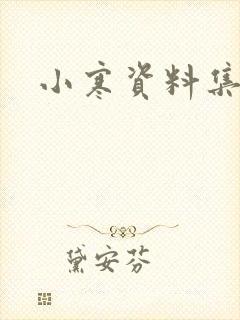 小寒資料集
黛安芬